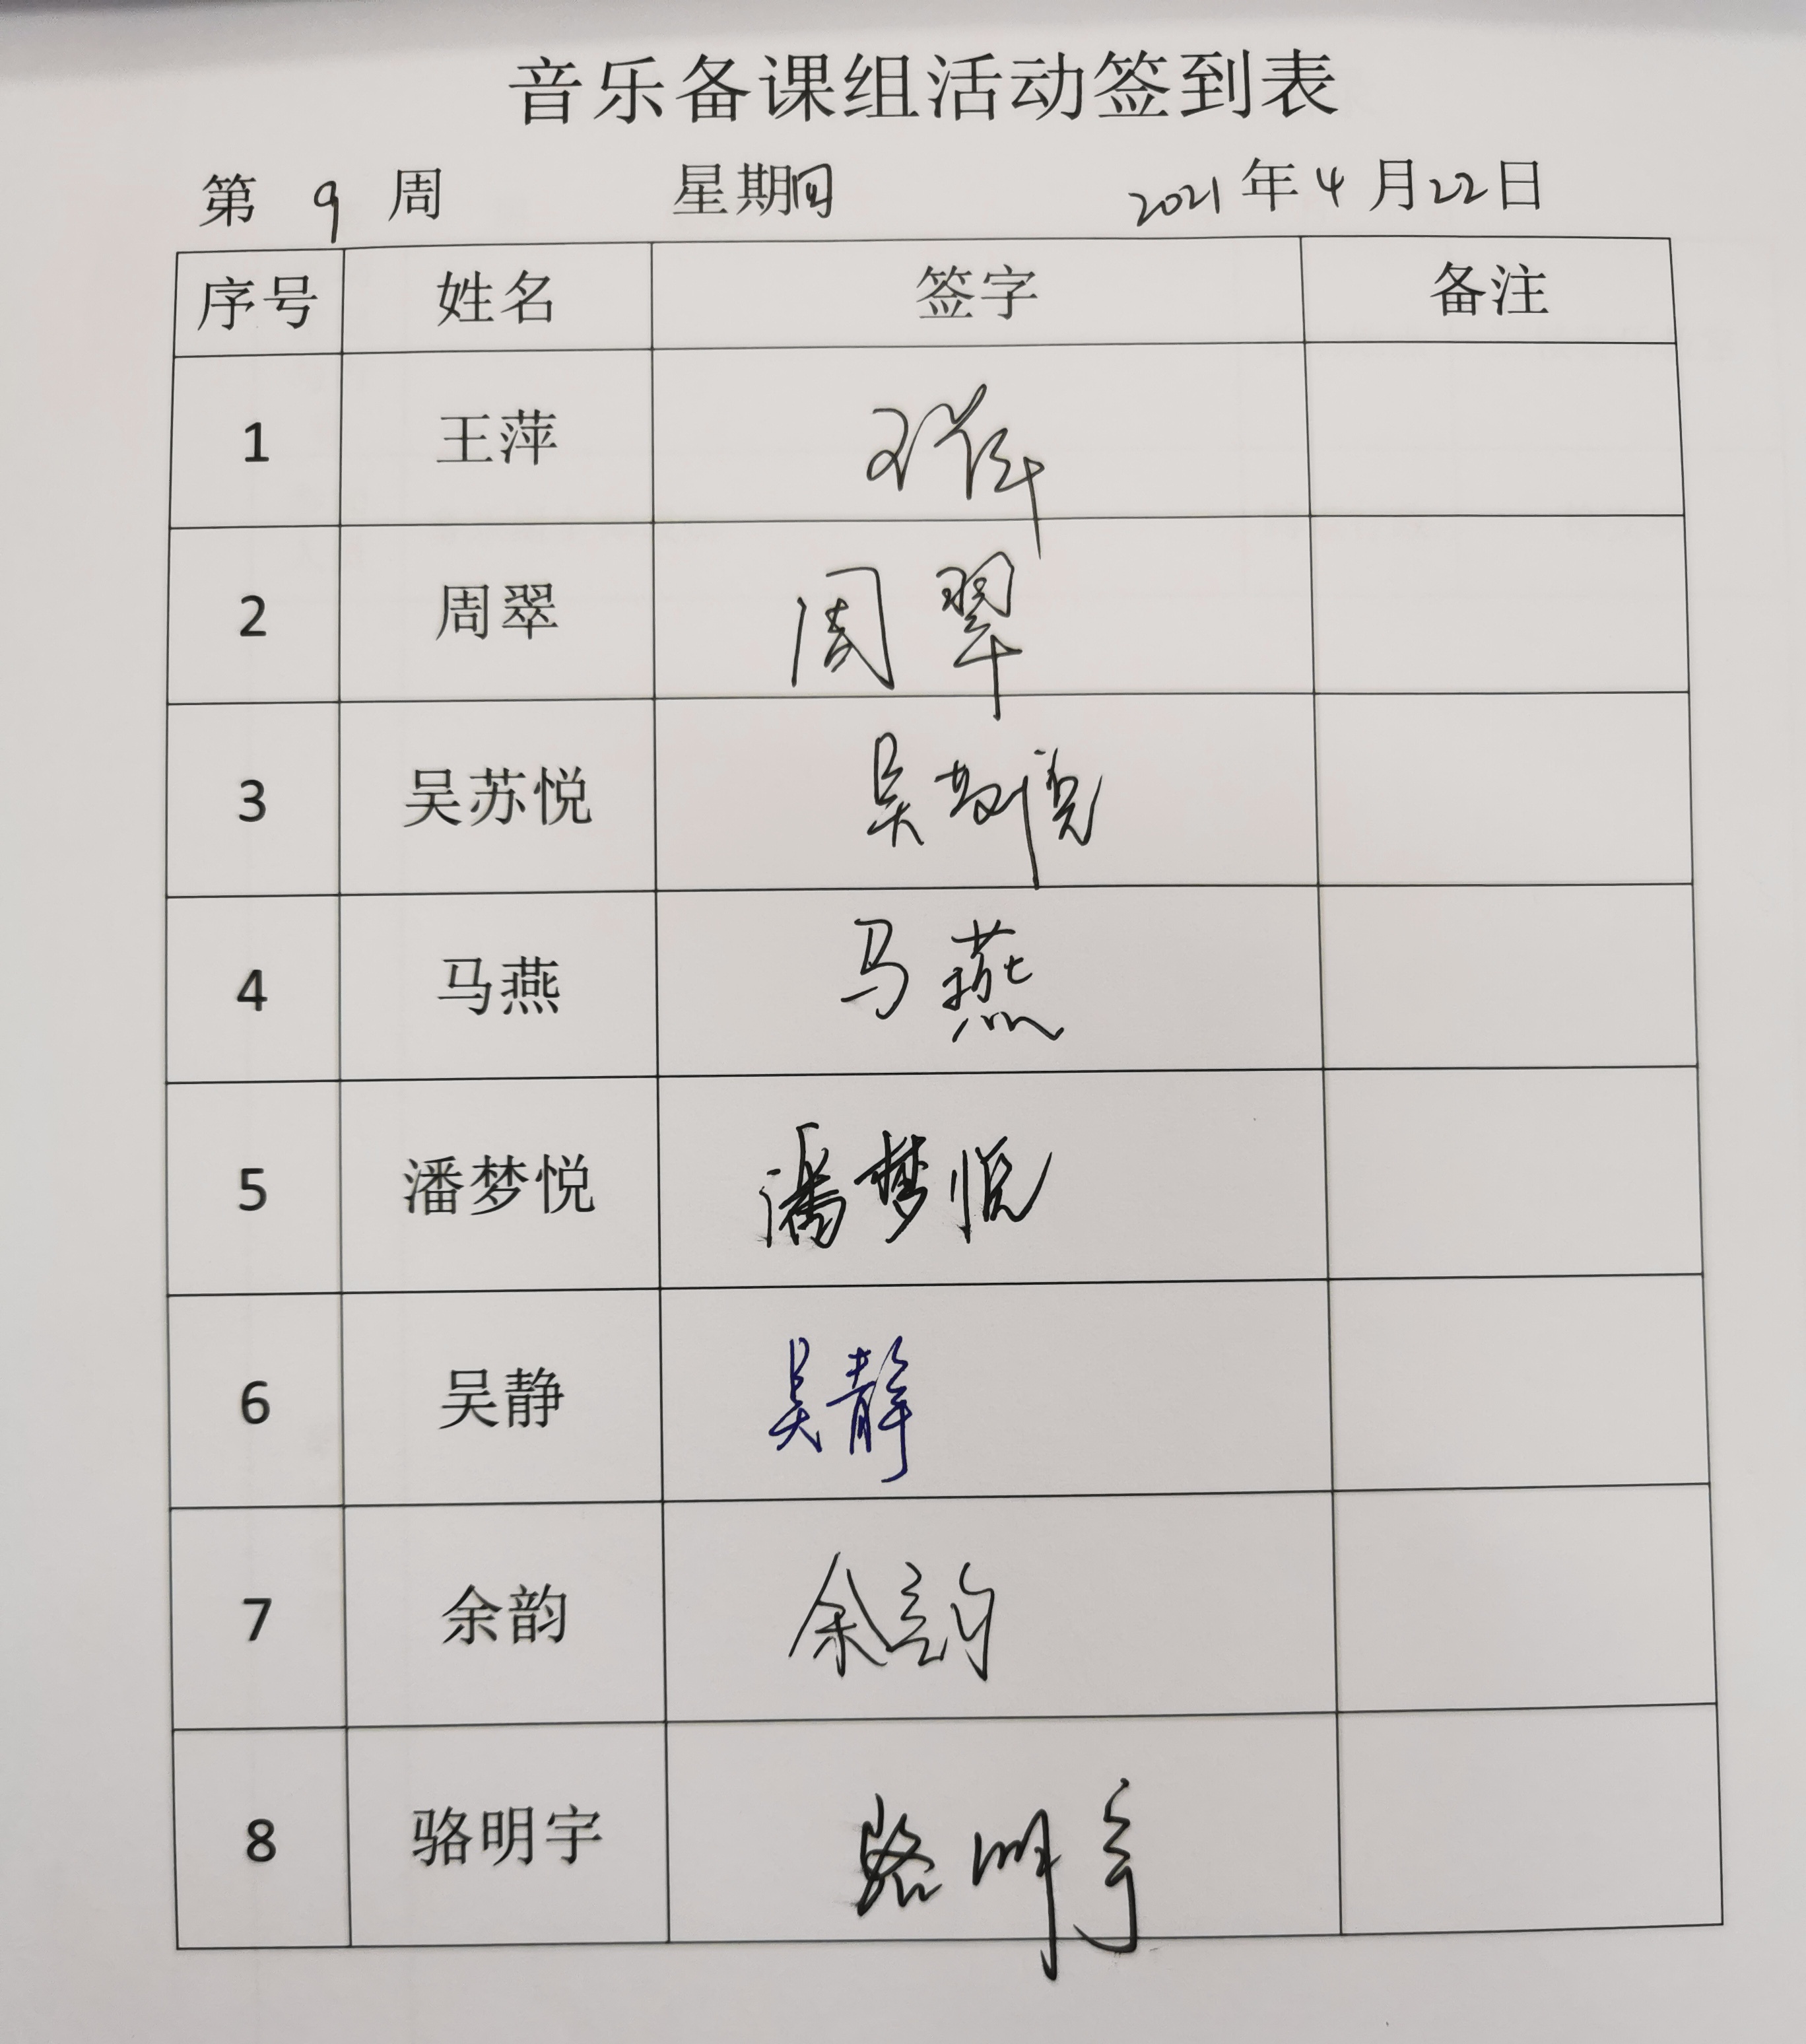 音乐备课组活动签到表
第 9 周 星期四 2021年4月22日
序号 姓名 签字 备注
1 王萍 王萍
2 周翠 周翠
3 吴苏悦 吴苏悦
4 马燕 马燕
5 潘梦悦 潘梦悦
6 吴静 吴静
7 余韵 余韵
8 骆明宇 骆明宇